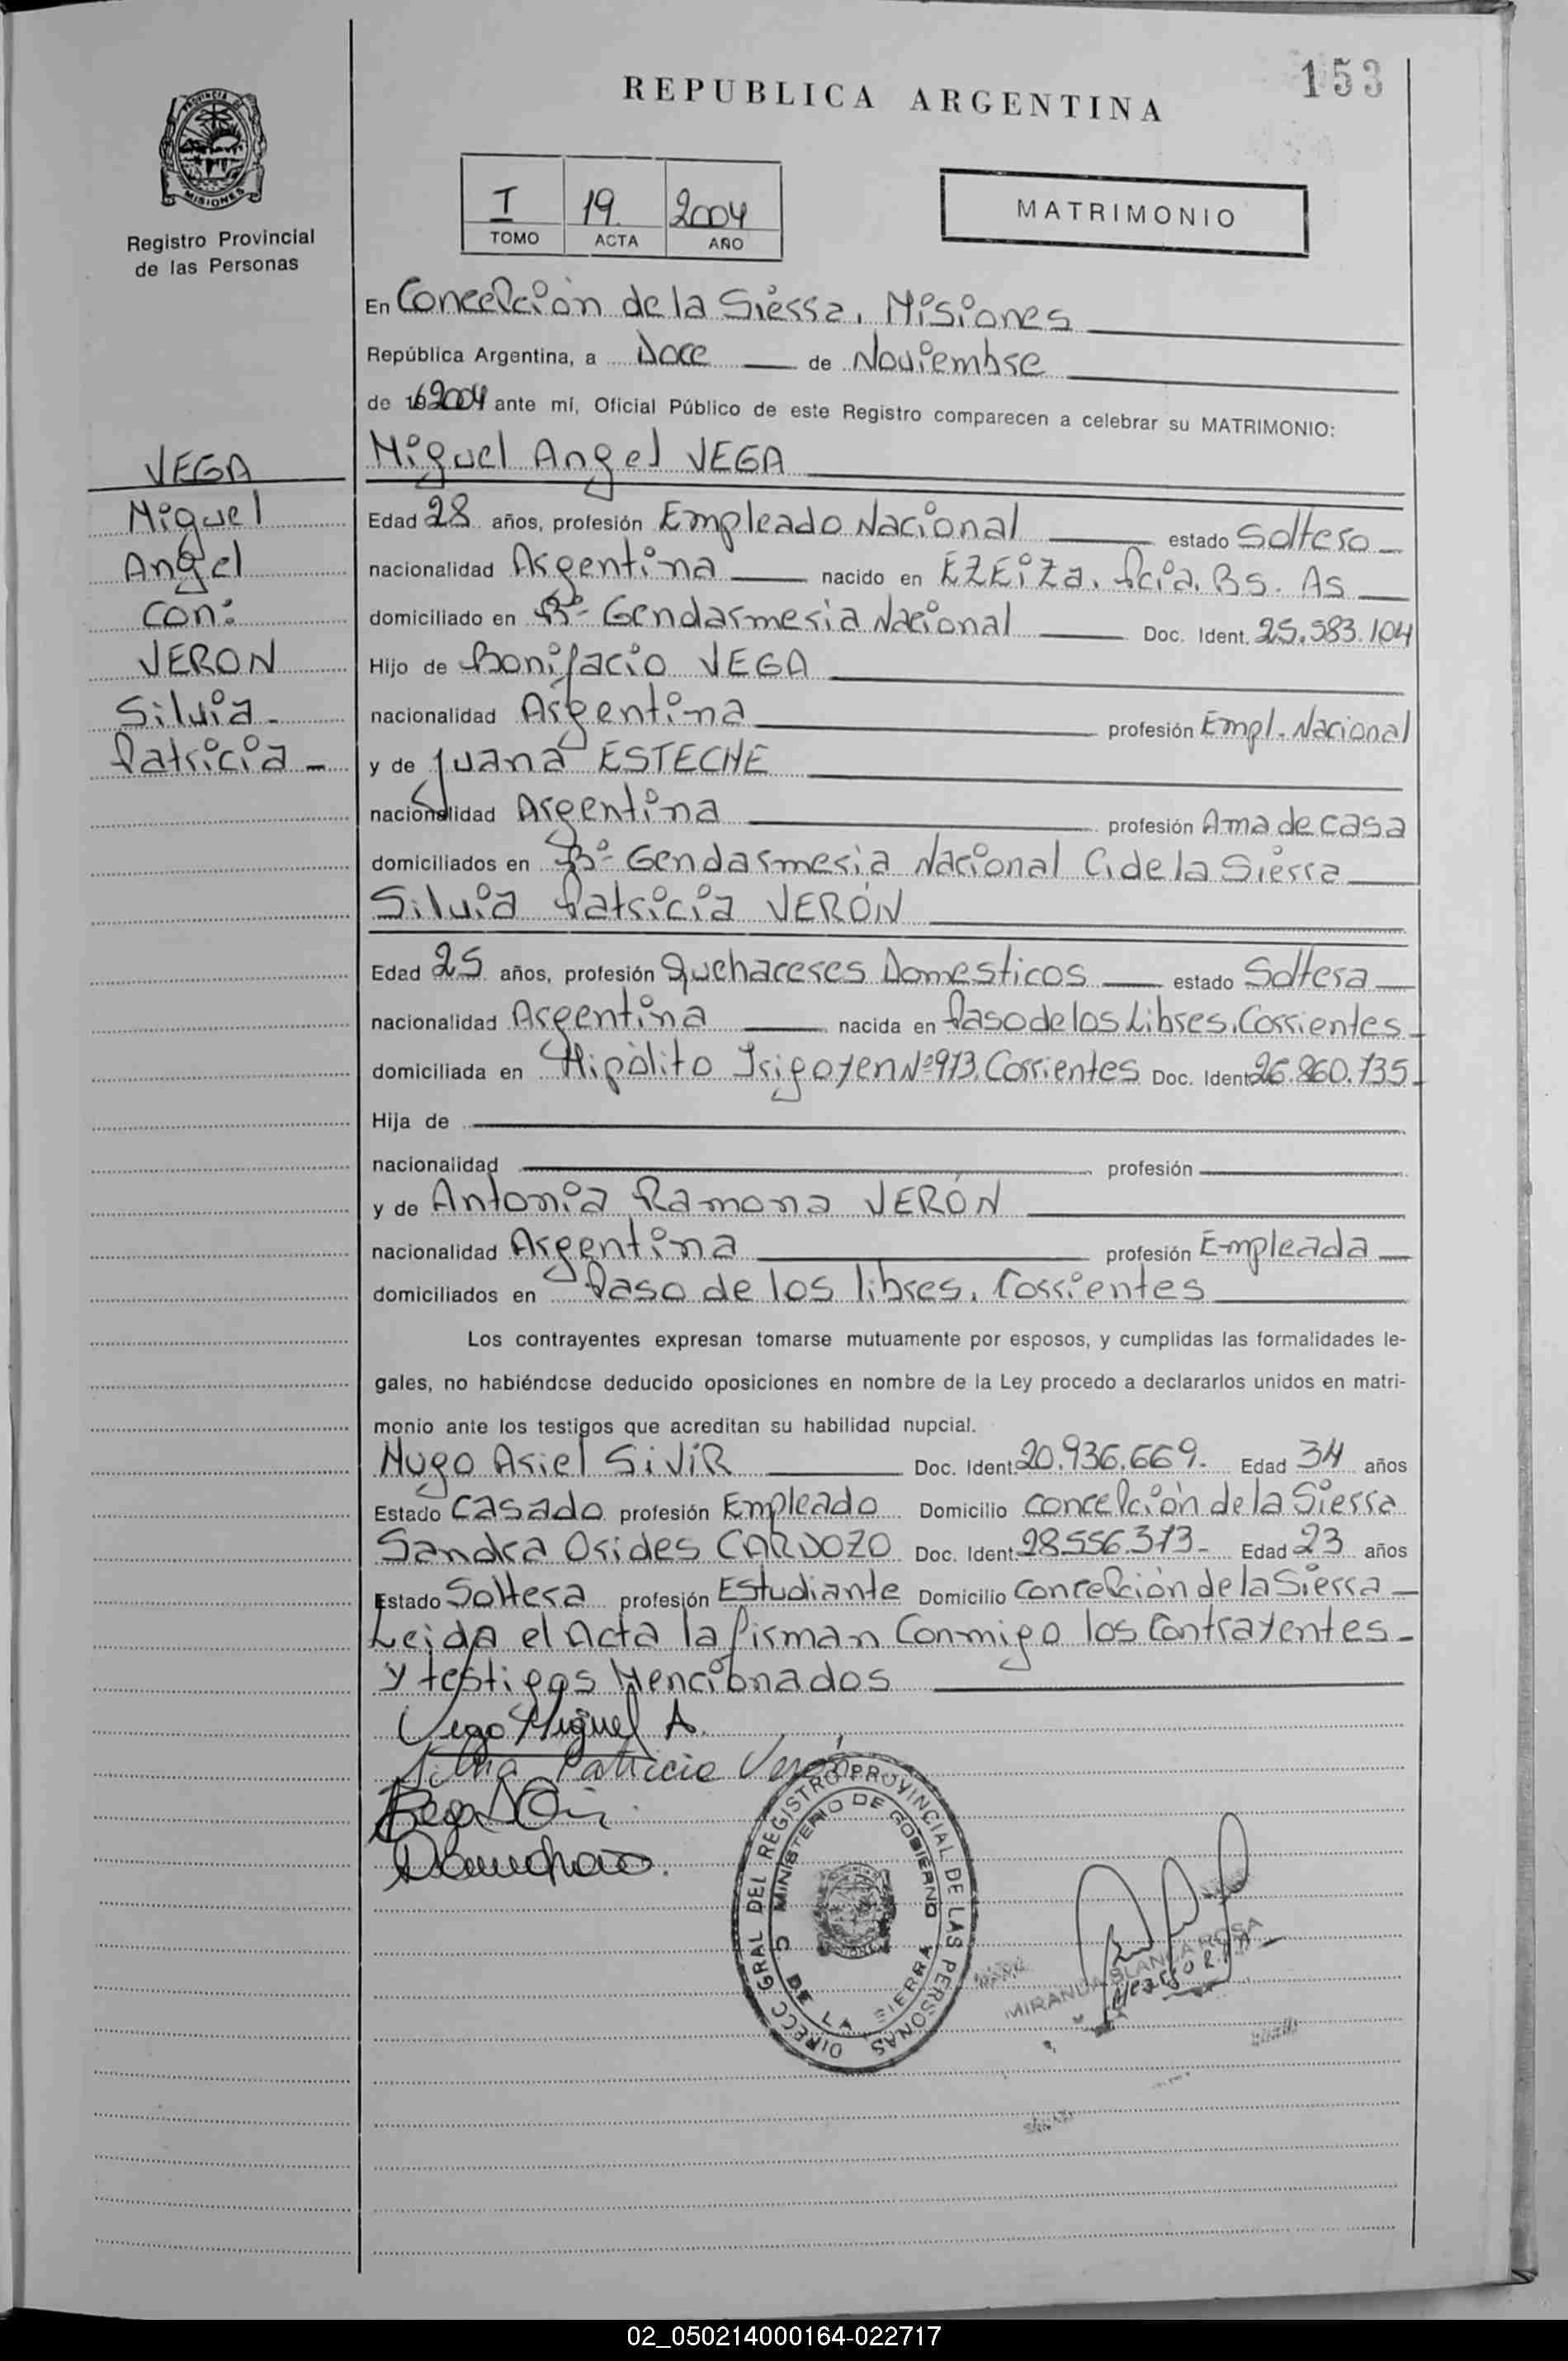 153
REPUBLICA ARGENTINA
PROVINCIA DE MISIONES
Registro Provincial
de las Personas
I 19 2004
TOMO ACTA AÑO
MATRIMONIO
En Concepción de la Sierra, Misiones
República Argentina, a Doce de Noviembre
de 2004 ante mí, Oficial Público de este Registro comparecen a celebrar su MATRIMONIO:
VEGA
Miguel
Angel
con:
VERON
Silvia
Patricia
Miguel Angel VEGA
Edad 28 años, profesión Empleado Nacional estado Soltero
nacionalidad Argentina nacido en EZEiZa. Pcia. Bs. As
domiciliado en Bº Gendarmeria Nacional Doc. Ident. 25.583.104
Hijo de Bonifacio VEGA
nacionalidad Argentina profesión Empl. Nacional
y de Juana ESTECHE
nacionalidad Argentina profesión Ama de casa
domiciliados en Bº Gendarmeria Nacional C. de la Sierra
Silvia Patricia VERÓN
Edad 25 años, profesión Quehaceres Domesticos estado Soltera
nacionalidad Argentina nacida en Paso de los Libres, Corrientes
domiciliada en Hipólito Irigoyen Nº 913, Corrientes Doc. Ident. 26.860.735
Hija de
nacionalidad profesión
y de Antonia Ramona VERÓN
nacionalidad Argentina profesión Empleada
domiciliados en Paso de los libres, Corrientes
Los contrayentes expresan tomarse mutuamente por esposos, y cumplidas las formalidades le-
gales, no habiéndose deducido oposiciones en nombre de la Ley procedo a declararlos unidos en matri-
monio ante los testigos que acreditan su habilidad nupcial.
Hugo Ariel SiViR Doc. Ident. 20.936.669. Edad 34 años
Estado Casado profesión Empleado Domicilio Concepción de la Sierra
Sandra Orides CARDOZO Doc. Ident. 28.556.373 Edad 23 años
Estado Soltera profesión Estudiante Domicilio Concepción de la Sierra
Leida el Acta la firman Conmigo los Contrayentes
y testigos Mencionados
Vega Miguel A.
Silvia Patricia Verón
DIRECC GRAL DEL REGISTRO PROVINCIAL DE LAS PERSONAS
MINISTERIO DE GOBIERNO
C DE LA SIERRA
MIRANDA BLANCA ROSA
02_050214000164-022717